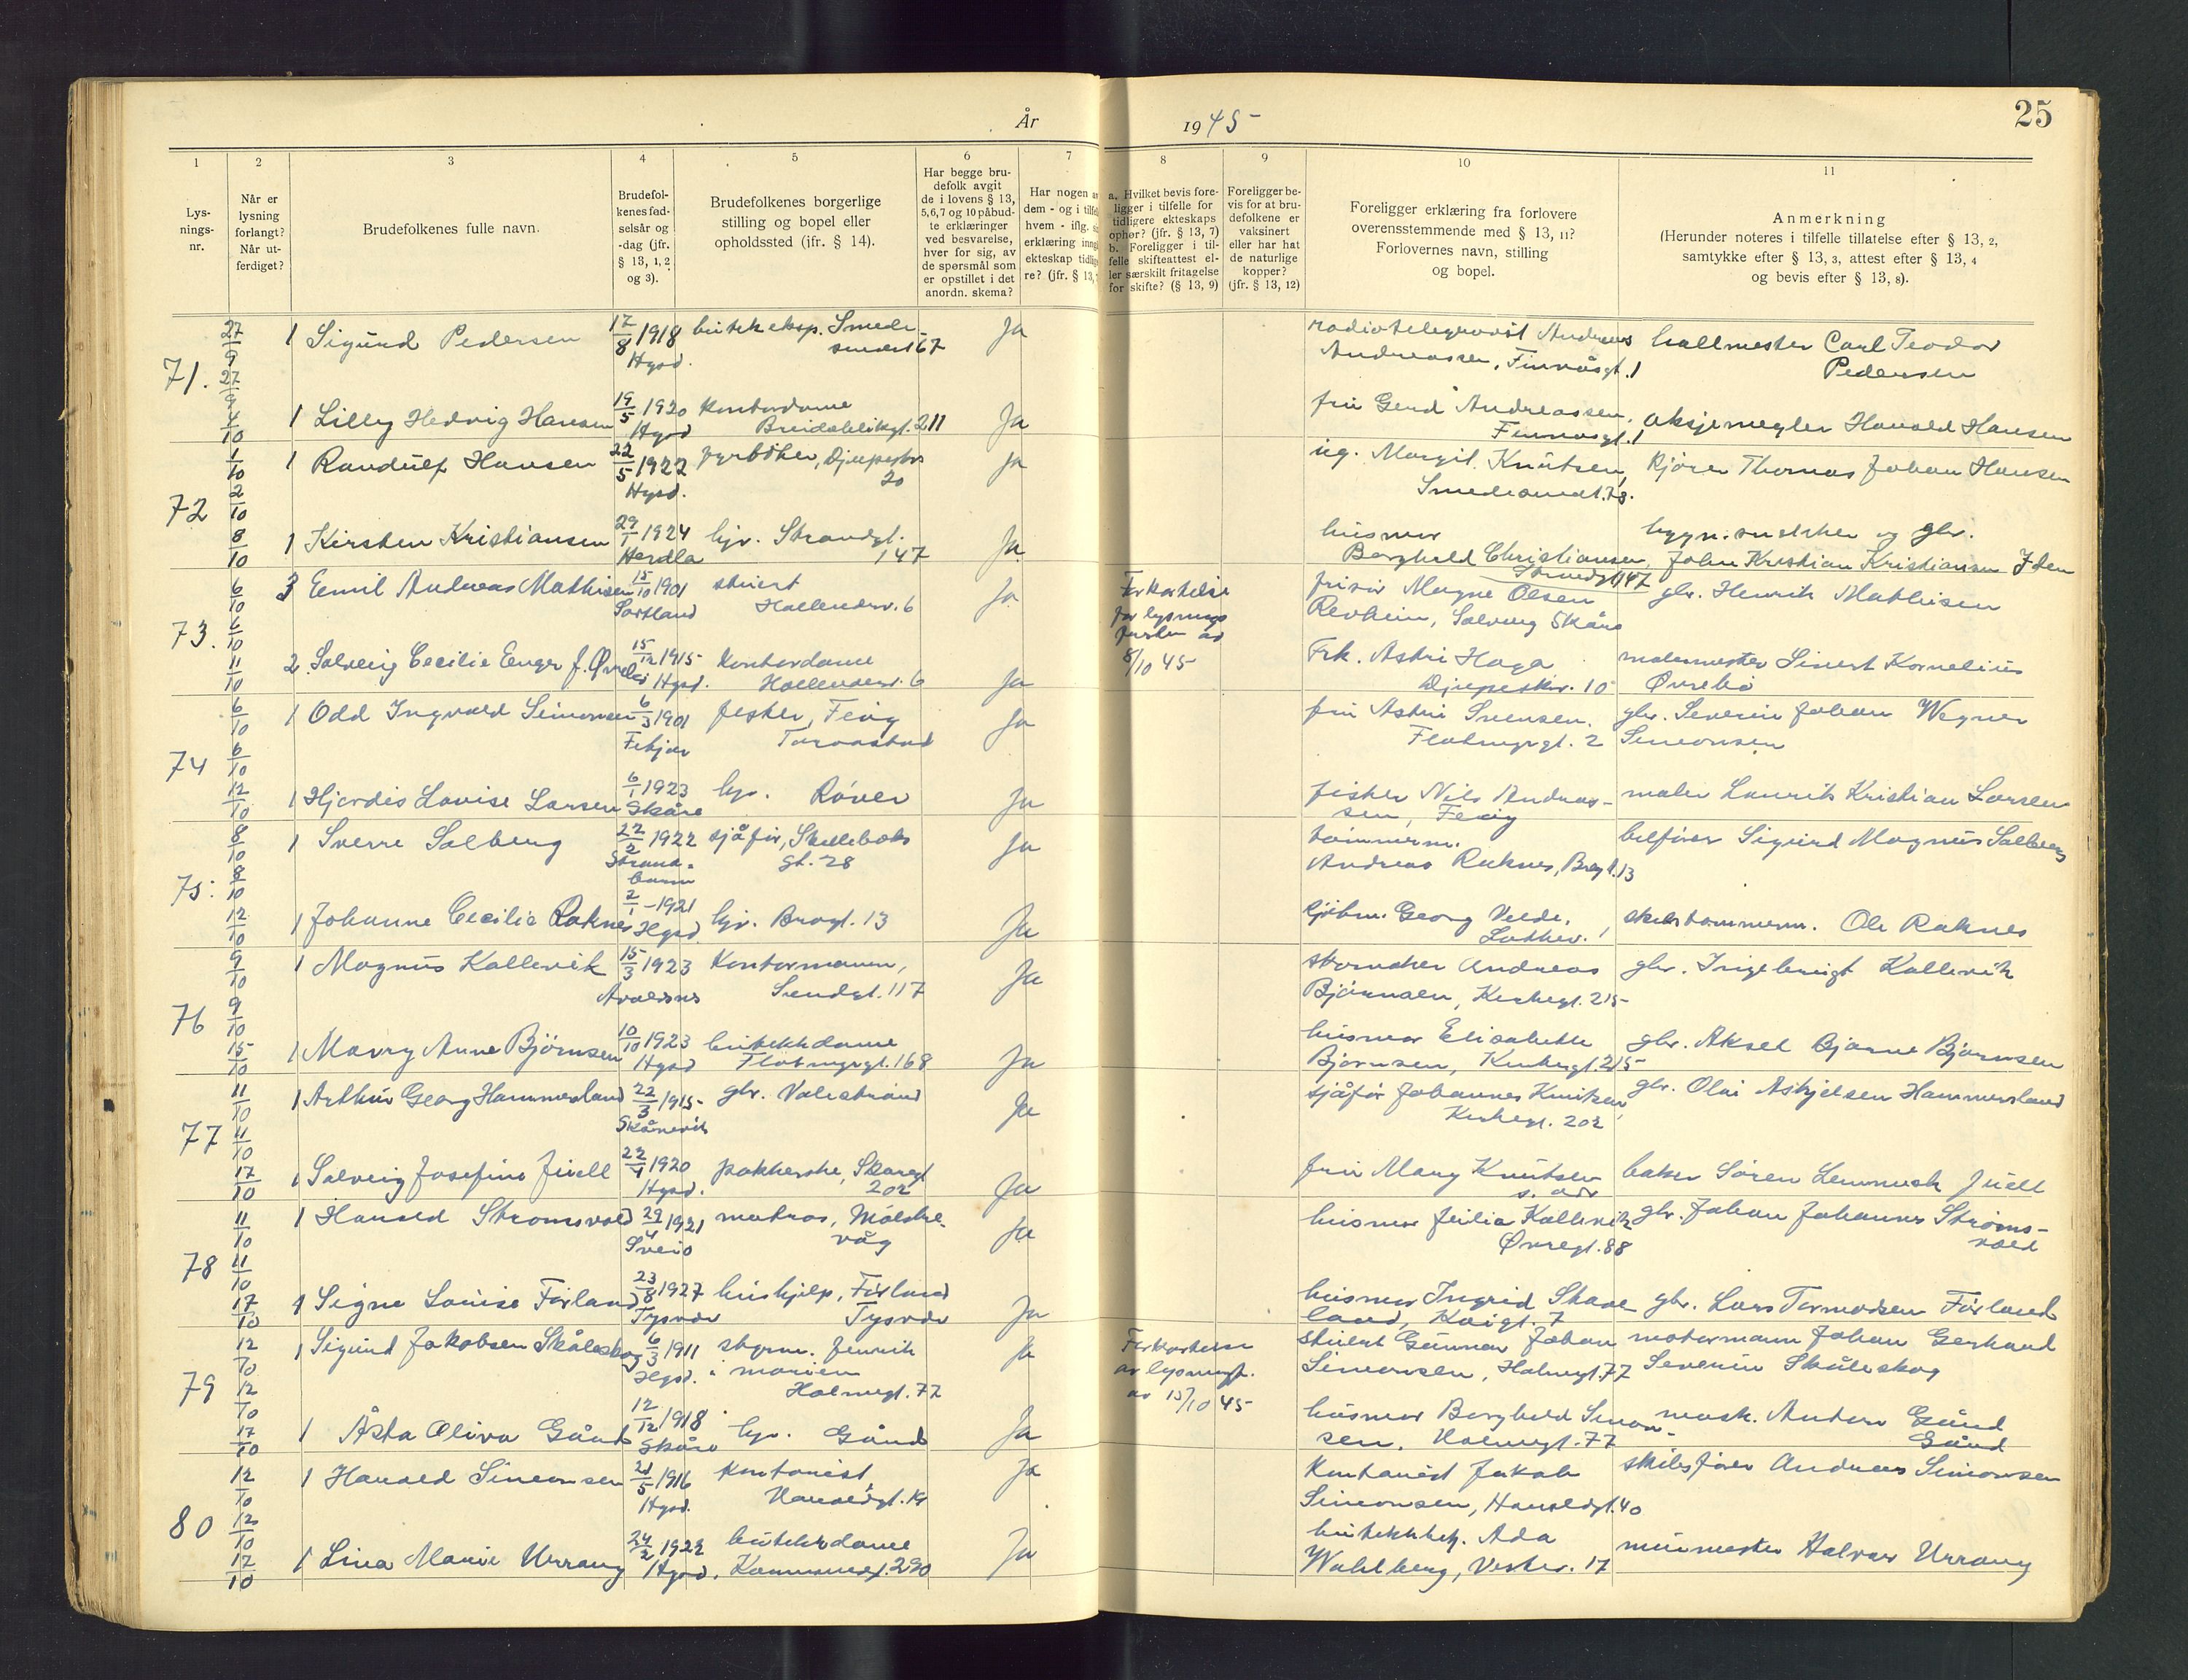 År
19 45
25
1
2
3
4
5
6
7
8
9
10
11
Lys-
nings-
nr.
Når er
lysning
forlangt?
Når ut-
ferdiget?
Brudefolkenes fulle navn.
Brudefol-
kenes fød-
selsår og
-dag (jfr.
§ 13, 1, 2
og 3).
Brudefolkenes borgerlige
stilling og bopel eller
opholdssted (jfr. § 14).
Har begge bru-
defolk avgit
de i lovens § 13,
5, 6, 7 og 10 påbud-
te erklæringer
ved besvarelse,
hver for sig, av
de spørsmål som
er opstillet i det
anordn. skema?
Har nogen
dem - og i
hvem - iflg.
erklæring
ekteskap
re? (jfr. § 13,
a. Hvilket bevis fore-
ligger i tilfelle for
tidligere ekteskaps
ophør? (jfr. § 13, 7)
b. Foreligger i til-
felle skifteattest el-
ler særskilt fritagelse
for skifte? (§ 13, 9)
Foreligger be-
vis for at bru-
defolkene er
vaksinert
eller har hat
de naturlige
kopper?
(jfr. § 13, 12)
Foreligger erklæring fra forlovere
overensstemmende med § 13, 11?
Forlovernes navn, stilling
og bopel.
Anmerkning
(Herunder noteres i tilfelle tillatelse efter § 13, 2,
samtykke efter § 13, 3, attest efter § 13, 4
og bevis efter § 13, 8).
71.
27/9 27/9
1 Sigurd Pedersen
17/8 1918
Hgsd.
butikeksp.
67
Ja
radiotelegrafist Andreas
Andreassen, Finnåsgt. 1
hallmester Carl Teodor
Pedersen
4/10
1 Lilly Hedvig Hansen
19/5 1920
Hgsd
kontordame
Breidablikgt. 211
Ja
fru Gerd Andreassen,
Finnåsgt. 1
aksjemegler Harald Hansen
72
1/10 2/10
1 Randulf Hansen
22/5 1922
Hgsd.
fyrbøter,
20
Ja
ug. Margit Knutsen,
kjører Thomas Johan Hansen
8/10
1 Kirsten Kristiansen
29/1 1924
Herdla
hjv. Strandgt.
147
Ja
husmor
Borghild Christiansen,
Strandgt. 147
bygn. snekker og gbr.
John Kristian Kristiansen
73.
6/10 6/10
3 Emil Andreas Mathisen
15/10 1901
Sortland
stuert
6
Ja
Forkortelse
for lysnings
av
8/10 45
frisør Magne Olsen
Solveig Skåre
gbr. Henrik Mathisen
11/10
2 Solveig Cecilie Enger f. Øvrebø
15/12 1915
Hgsd.
kontordame
6
Ja
Frk. Astri Haga
10
malermester Sivert Kornelius
Øvrebø
74
6/10 6/10
1 Odd Ingvald Simonsen
6/3 1901
fisker, Feøy
Torvastad
Ja
fru Astri Svensen.
Flotmyrgt. 2
gbr. Severin Johan Wegner
Simonsen
12/10
1 Hjørdis Lovise Larsen
6/1 1923
Skåre
hjv. Røvær
Ja
fisker Nils Andreas-
sen, Feøy
maler Laurits Kristian Larsen
75.
8/10 8/10
1 Sverre Solberg
22/2 1922
Strand-
barm
sjåfør,
gt. 28
Ja
tømmerm.
Andreas Raknes, Bragt. 13
bilfører Sigurd Magnus Solberg
12/10
1 Johanne Cecilie Raknes
2/1 - 1921
Hgsd
hjv. Bragt. 13
Ja
Georg Velde,
skibstømmerm. Ole Raknes
76
9/10 9/10
1 Magnus Kallevik
15/3 1923
Avaldsnes
Kontormann,
Sundgt. 117
Ja
Andreas
Bjørnsen, Kirkegt. 215
gbr. Ingebrigt Kallevik
15/10
1 Mavry Anne Bjørnsen
10/10 1923
Hgsd
butikkdame
Flotmyrgt. 168
Ja
husmor Elisabeth
Bjørnsen, Kirkegt. 215
gbr. Aksel Bjarne Bjørnsen
77
11/10 11/10
1 Arthur Georg Hammersland
22/3 1915
Skånevik
gbr. Valestrand
Ja
sjåfør Johannes Knutsen,
Kirkegt. 202
gbr. Olai Askjelsen Hammersland
17/10
1 Solveig Josefine Juell
22/4 1920
Hgsd.
pakkerske, Skaregt
202
Ja
fru Mary Knutsen
s. adr
baker Søren Lemmech Juell
78
11/10 11/10
1 Harald Strømsvold
29/4 1921
Sveio
matros, Møkste-
våg
Ja
husmor Julia Kallevik
Øvregt. 88
gbr. Johan Johannes Strøms-
vold
17/10
1 Signe Louise Førland
23/8 1927
Tysvær
hushjelp, Førland
Tysvær
Ja
husmor Ingrid Skave
land, Kaigt. 7
gbr. Lars Tormodsen Førland
79
12/10 12/10
1 Sigurd Jakobsen Skåleskog
6/3 1911
Hgsd.
styrm.
i marinen
Holmegt. 77
Ja
Forkortelse
av lysningsf.
av 15/10 45
stuert Gunnar Johan
Simonsen, Holmegt. 77
motormann Johan Gerhard
Severin Skåleskog
17/10
1 Åsta Oliva Gaund
12/12 1918
Skåre
hjv. Gaund
Ja
husmor Borghild Simon-
sen, Holmegt. 77
mask. Anders Gaund
Gaund
80
12/10 12/10
1 Harald Simonsen
21/5 1916
Hgsd.
Kontorist,
Haraldgt.
Ja
Kontorist Jakob
Simonsen, Haraldgt. 40
skibsfører Andreas Simonsen
17/10
1 Lina Marie Urrang
24/2 1922
Hgsd.
butikkdame
290
Ja
Ada
Wahlberg, 17
murmester Halvar Urrang